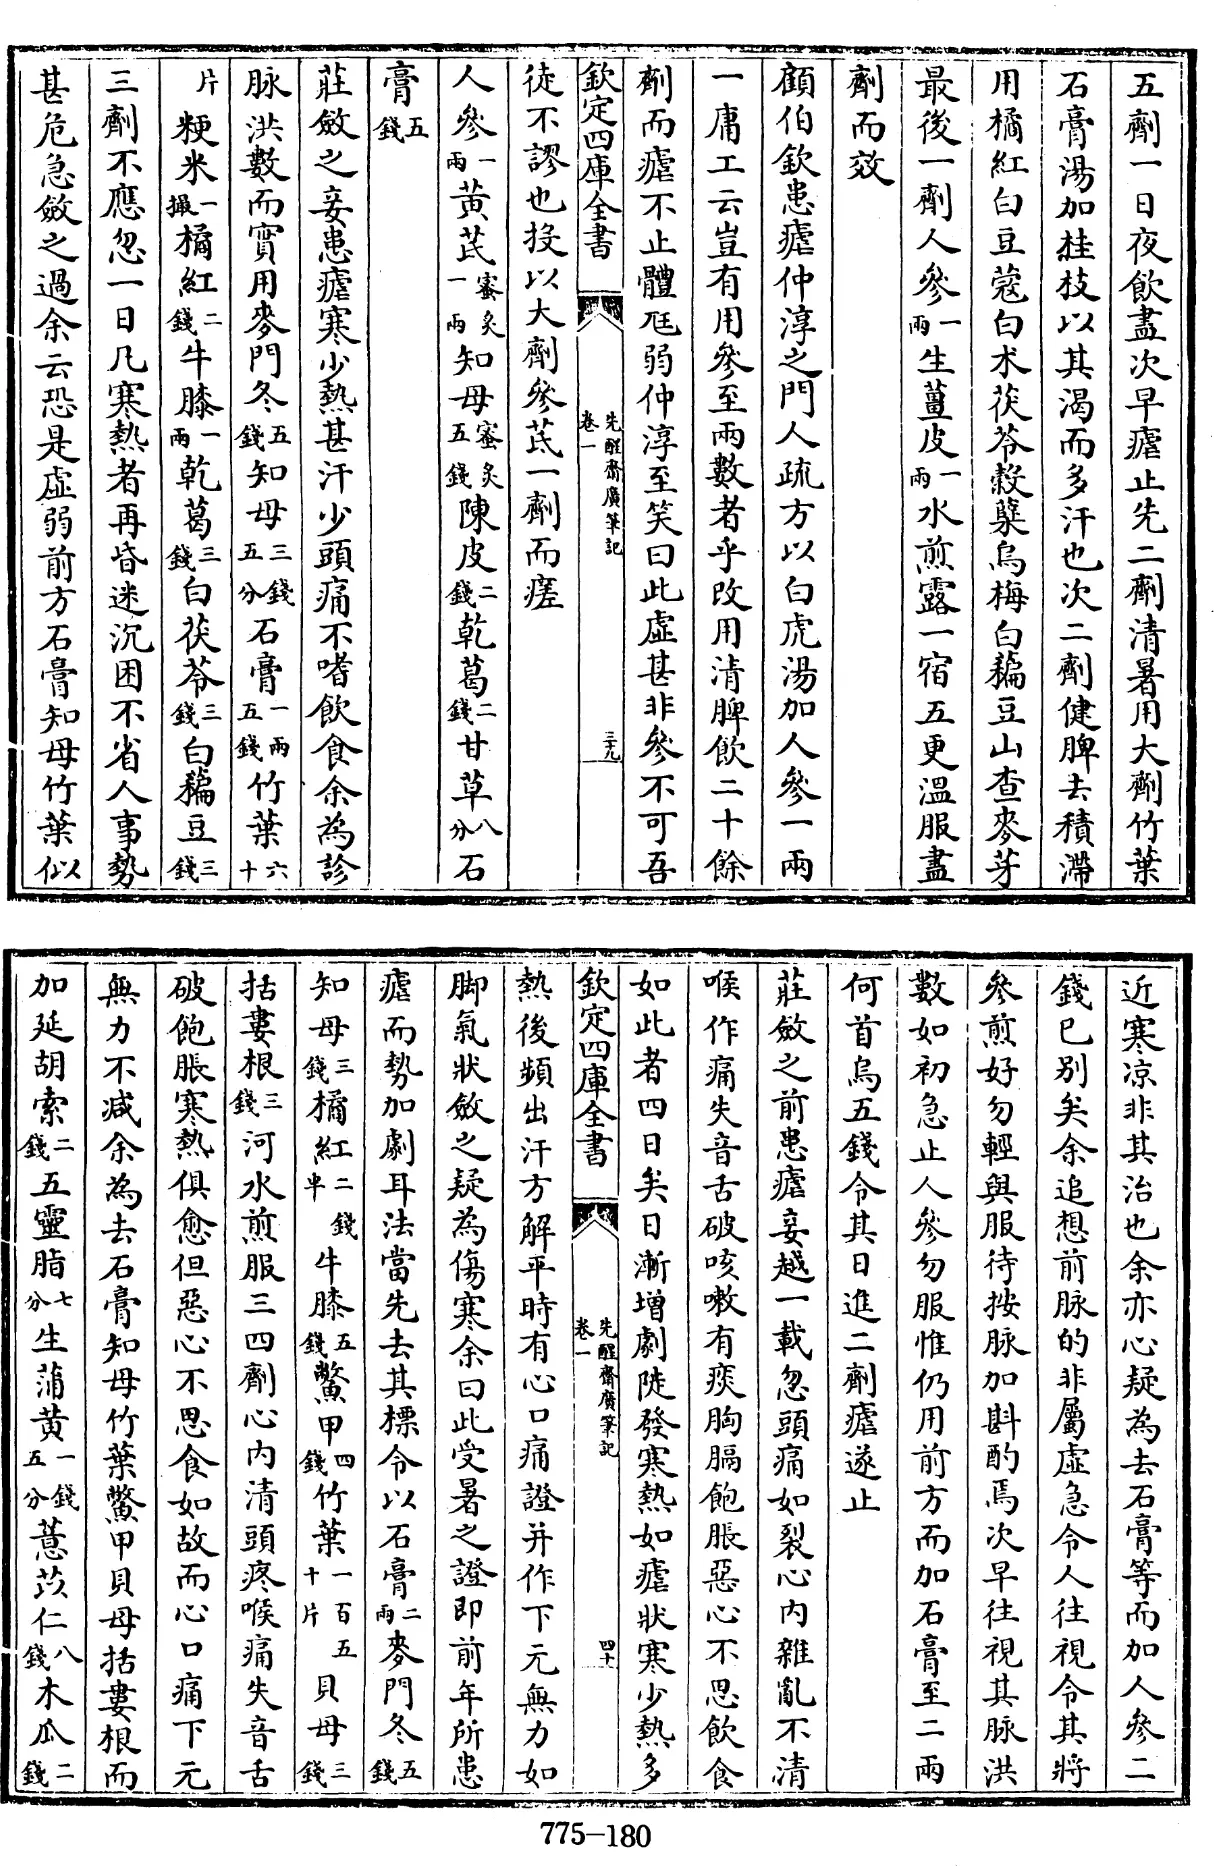 五劑一日夜飲盡次早瘧止先二劑清暑用大劑竹葉
石膏湯加桂枝以其渴而多汗也次二劑健脾去積滯
用橘紅白豆蔻白朮茯苓穀櫱烏梅白藊豆山查麥芽
最後一劑人參一兩生薑皮一兩水煎露一宿五更溫服盡
劑而效
顧伯欽患瘧仲淳之門人疏方以白虎湯加人參一兩
一庸工云豈有用參至兩數者乎改用清脾飲二十餘
劑而瘧不止體尫弱仲淳至笑曰此虛甚非參不可吾
欽定四庫全書
先醒齋廣筆記
卷一
三十九
徒不謬也投以大劑參茋一劑而瘥
人參一兩黃茋蜜炙一兩知母蜜炙五錢陳皮二錢乾葛二錢甘草八分石
膏五錢
莊斂之妾患瘧寒少熱甚汗少頭痛不嗜飲食余為診
脉洪數而實用麥門冬五錢知母三錢五分石膏一兩五錢竹葉六十
片粳米一撮橘紅二錢牛膝一兩乾葛三錢白茯苓三錢白藊豆三錢
三劑不應忽一日凡寒熱者再昏迷沉困不省人事勢
甚危急斂之過余云恐是虛弱前方石膏知母竹葉似
近寒凉非其治也余亦心疑為去石膏等而加人參二
錢已别矣余追想前脉的非屬虛急令人往視令其將
參煎好勿輕與服待按脉加斟酌焉次早往視其脉洪
數如初急止人參勿服惟仍用前方而加石膏至二兩
何首烏五錢令其日進二劑瘧遂止
莊斂之前患瘧妾越一載忽頭痛如裂心内雜亂不清
喉作痛失音舌破咳嗽有痰胸膈飽脹惡心不思飲食
如此者四日矣日漸增劇陡發寒熱如瘧狀寒少熱多
欽定四庫全書
先醒齋廣筆記
卷一
四十
熱後頻出汗方解平時有心口痛證并作下元無力如
脚氣狀斂之疑為傷寒余曰此受暑之證即前年所患
瘧而勢加劇耳法當先去其標令以石膏二兩麥門冬五錢
知母三錢橘紅二錢半牛膝五錢鱉甲四錢竹葉一百五十片貝母三錢
括蔞根三錢河水煎服三四劑心内清頭疼喉痛失音舌
破飽脹寒熱俱愈但惡心不思食如故而心口痛下元
無力不減余為去石膏知母竹葉鱉甲貝母括蔞根而
加延胡索二錢五靈脂七分生蒲黃一錢五分薏苡仁八錢木瓜二錢
775-180